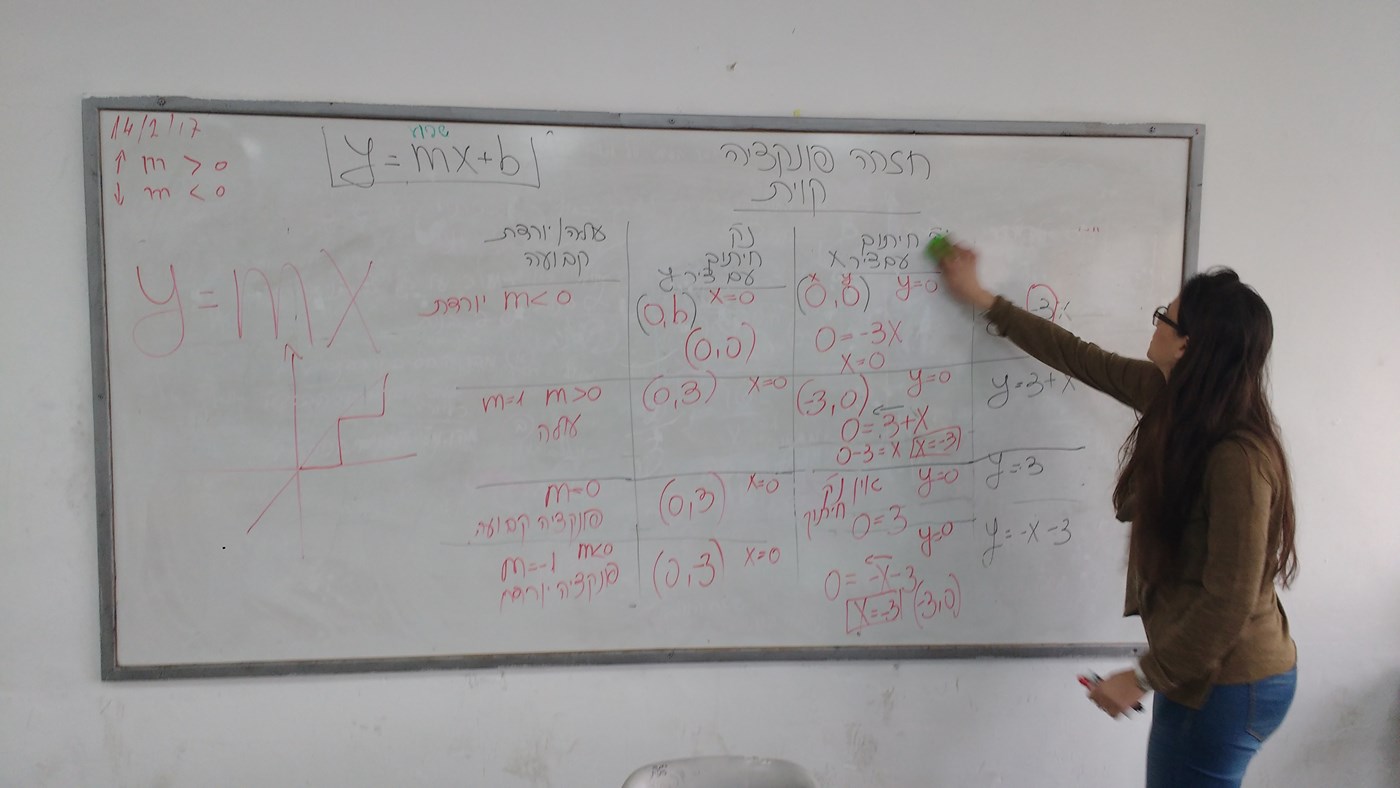 14/2/17
↑ m > 0
↓ m < 0
שיפוע
y = mx + b
חזרה פונקציה
קוית
y = mx
עולה/יורדת
קבועה
נק
חיתוך
עם ציר y
חיתוך
עם ציר x
יורדת m < 0
(0,b) x=0
(0,0)
x y
(0,0) y=0
0 = -3x
x=0
m=1 m>0
עולה
(0,3) x=0
(-3,0) y=0
0 = 3+x
0-3 = x x=-3
y = 3+x
m=0
פונקציה קבועה
(0,3) x=0
אין נק y=0
חיתוך 0=3
y = 3
m=-1 m<0
פונקציה יורדת
(0,-3) x=0
y=0
0 = -x-3
x=-3 (-3,0)
y = -x-3